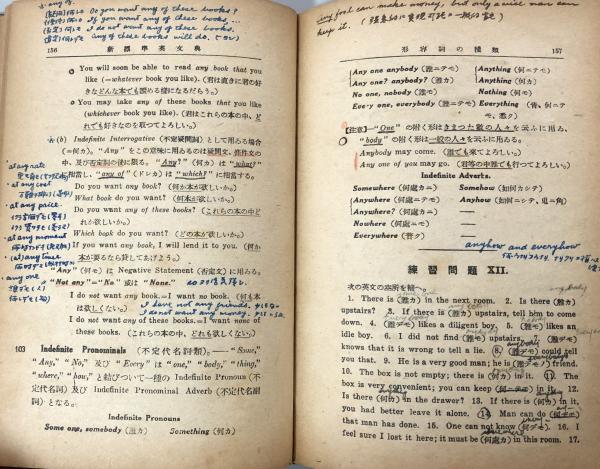 Do you want any of these books?
If you want any of these books...
I do not want any of these books.
any of these books will do.
156 新標準英文典
You will soon be able to read any book that you
like (=whatever book you like). (君は直きに君の好
きなどんな本でも讀める樣になるだらう。)
You may take any of these books that you like
(whichever book you like). (君はこれらの本の中、ど
れでも好きなのを取つてよろしい。)
(b) Indefinite Interrogative (不定疑問詞) として用ゐる場合
(=何カ)。 "Any" をこの意味に用ゐるのは疑問文、條件文の
中、及び否定詞の後に限る。 "Any?" (何カ) は "what?"
に相當し、"any of" (ドレカ) は "which?" に相當する。
at any rate
Do you want any book? (何か本が欲しいか。)
at any cost
What book do you want? (何本が欲しいか。)
at any price
Do you want any of these books? (これらの本の中ど
れか欲しいか。)
at any moment
Which book do you want? (どの本が欲しいか。)
(at) any time
If you want any book, I will lend it to you. (何か
本が要るなら貸してあげよう。)
any one
"Any" (何モ) は Negative Statement (否定文) に用ゐる。
"Not any"="No" 或は "None."
I do not want any book.=I want no book. (何も本
は欲しくない。)
I do not have any friends.
I do not want any money.
I do not want any of these books.=I want none of
these books. (これらの本の中、どれも欲しくない。)
103 Indefinite Pronominals (不定代名詞類)。——"Some,"
"Any," "No," 及び "Every" は "one," "body," "thing,"
"where," "how," と結びついて一種の Indefinite Pronoun (不
定代名詞) 及び Indefinite Pronominal Adverb (不定代名副
詞) となる。
Indefinite Pronouns
Some one, somebody (誰カ) Something (何カ)
Any fool can make money, but only a wise man can
keep it.
形容詞の種類 157
Any one anybody (誰ニテモ) Anything (何ニテモ)
Any one? anybody? (誰カ) Anything (何カ)
No one, nobody (誰モ) Nothing (何モ)
Every one, everybody (誰ニテモ) Everything (皆、何ニテ
モ、悉ク)
【注意】—"One" の附く形はきまつた數の人々を云ふに用ゐ、
"body" の附く形は一般の人々を云ふに用ゐる。
Anybody may come. (誰でも來てよろしい。)
Any one of you may go. (君等の中誰でも行つてよろしい。)
Indefinite Adverbs.
Somewhere (何處カニ) Somehow (如何カシテ)
Anywhere (何處ニテモ) Anyhow (如何ニシテモ、兎ニ角)
Anywhere? (何處カニ) —
Nowhere (何處ニモ) —
Everywhere (普ク) —
anyhow and everyhow
練習問題 XII.
次の英文の空所を補へ。
1. There is (誰カ) in the next room. 2. Is there (誰カ)
upstairs? 3. If there is (誰カ) upstairs, tell him to come
down. 4. (誰デモ) likes a diligent boy. 5. (誰モ) likes an
idle boy. 6. I did not find (誰モ) upstairs. 7. (誰デモ)
knows that it is wrong to tell a lie. 8. (誰デモ) could tell
you that. 9. He is a very good man; he is (誰デモノ) friend.
10. The box is not empty; there is (何カ) in it. 11. The
box is very convenient; you can keep (何ニテモ) in it. 12.
Is there (何カ) in the drawer? 13. If there is (何カ) in it,
you had better leave it alone. 14. Man can do (何モ)
that man has done. 15. One can not know (何デモ). 16. I
feel sure I lost it here; it must be (何處カ) in this room. 17.